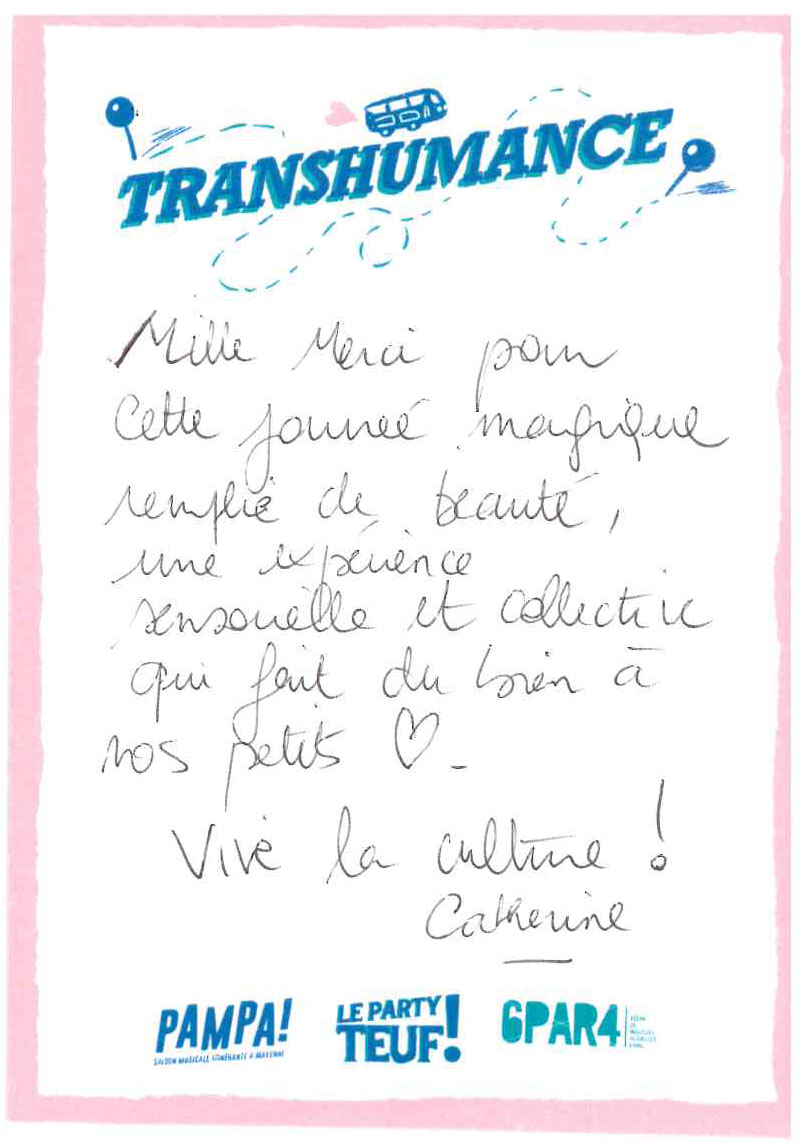 TRANSHUMANCE
Mille Merci pour
Cette journeé magique
remplie de beauté,
une expérience
sensorielle et collective
qui fait du bien à
nos petits ♡ -
Vive la culture !
Catherine
PAMPA!
SAISON MUSICALE ITINÉRANTE & MAYENNE
LE PARTY
TEUF!
6PAR4